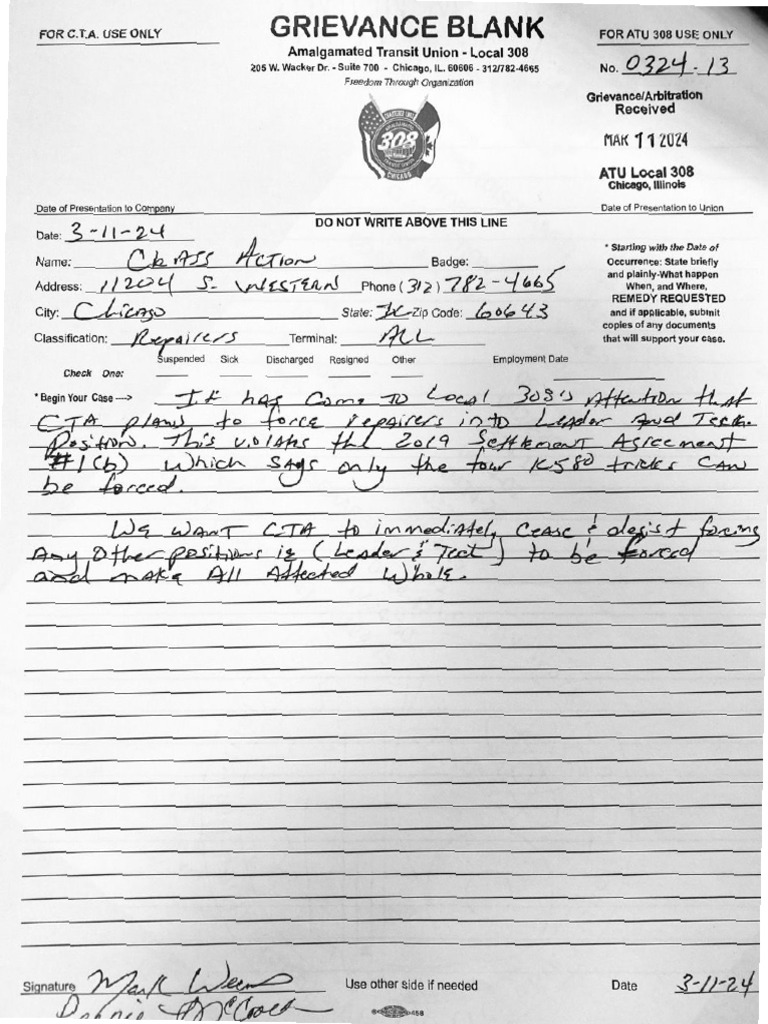 GRIEVANCE BLANK
FOR C.T.A. USE ONLY
FOR ATU 308 USE ONLY
Amalgamated Transit Union - Local 308
205 W. Wacker Dr. - Suite 700 - Chicago, IL. 60606 - 312/782-4665
No. 0324-13
Freedom Through Organization
Grievance/Arbitration
Received
MAR 11 2024
308
CHICAGO
ATU Local 308
Chicago, Illinois
Date of Presentation to Company
Date of Presentation to Union
DO NOT WRITE ABOVE THIS LINE
Date: 3-11-24
Name: Class Action Badge:
Address: 11204 S. WESTERN Phone (312) 782-4665
City: Chicago State: IL Zip Code: 60643
Classification: Repairers Terminal: ALL
* Starting with the Date of
Occurrence: State briefly
and plainly-What happen
When, and Where,
REMEDY REQUESTED
and if applicable, submit
copies of any documents
that will support your case.
Suspended Sick Discharged Resigned Other Employment Date
Check One:
* Begin Your Case → It has come to Local 308's Attention that
CTA plans to force repairers into Leader and Tech.
Position. This violates the 2019 Settlement Agreement
#1(b) which says only the four K580 tricks can
be forced.
We want CTA to immediately cease & desist forcing
any other positions ie (Leader & Tect) to be forced
and make All Affected Whole.
Signature Mark Weems Use other side if needed Date 3-11-24
458